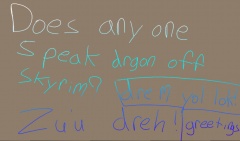 Does any one
speak drgon off
skyrim?
dreh yol lok
Zuu dreh!
greetings